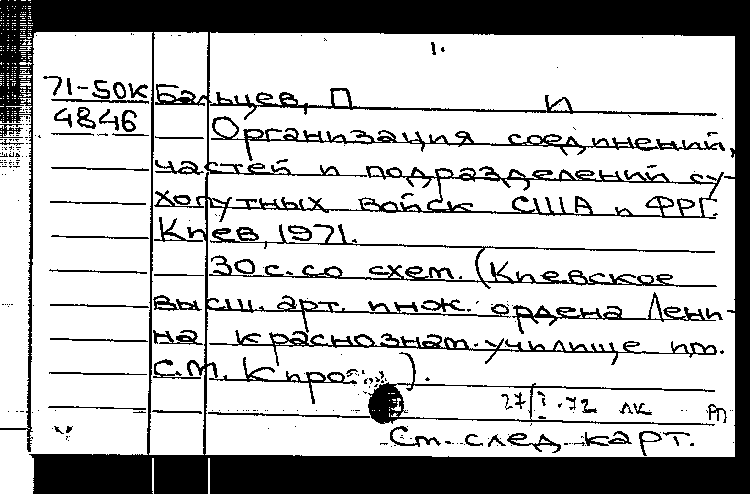 1.
71-50К Бальцев, П И
4846 Организация соединений,
частей и подразделений су-
хопутных войск США и ФРГ.
Киев, 1971.
30 с. со схем. (Киевское
высш. арт. инж. ордена Лени-
на краснознам. училище им.
С.М. Кирова).
72 ЛК
См. след. карт.